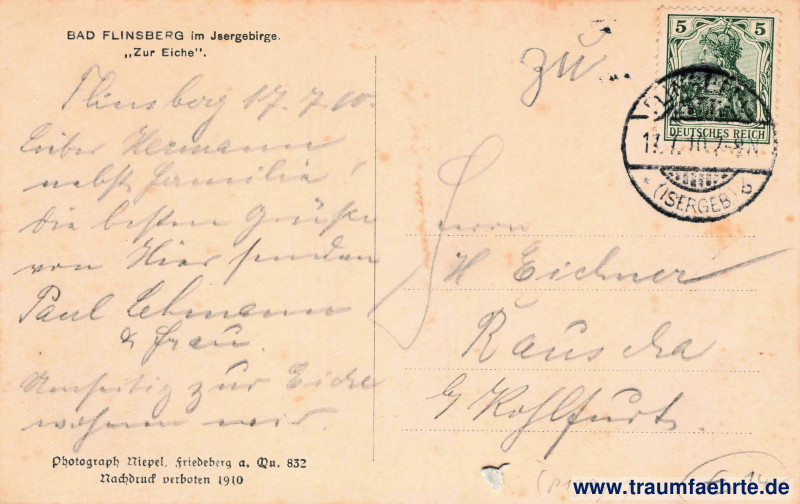 BAD FLINSBERG im Jsergebirge.
„Zur Eiche".
Flinsberg 17.7.10.
Lieber Hermann
nebst Familie!
Die besten Grüße
von Hier senden
Paul Lehmann
& Frau.
Umseitig zur Eiche
wohnen wir.
Photograph Niepel, Friedeberg a. Qu. 832
Nachdruck verboten 1910
zu
5 5
DEUTSCHES REICH
17.7.10.7-8N
* (ISERGEB) b
Herrn
H Eichner
Rauscha
b/ Kohlfurt.
www.traumfaehrte.de